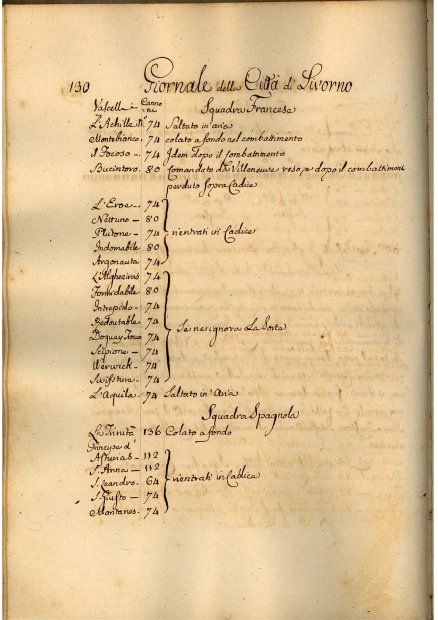 130 Giornale della Città di Livorno
Vascelli Canno
ni Squadra Francese
L'Achille N.° 74 Saltato in'aria
Montebianco 74 colato a fondo nel combattimento
Il Focoso - 74 Idem dopo il Combattimento
Bucintoro. 80 Comandato da Villeneuve reso, e dopo il combattimento
perduto sopra Cadice
L'Eroe - 74
Nettuno - 80
Plutone - 74 rientrati in Cadice
Indomabile 80
Argonauta 74
L'Algheziras 74
Formidabile 80
Intrepido - 74
Redoutable 74
Doguay Trouin 74 Se ne ignora La Sorte
Scipione - 74
Werwick - 74
Swifsture - 74
L'Aquila - 74 Saltato in' Aria
Squadra Spagnola
La Trinità 136 Colato a fondo
Principe d'
Asturias - 112
S. Anna - 112
S. Leandro 64 rientrati in Cadice
S. Giusto - 74
Montanes 74